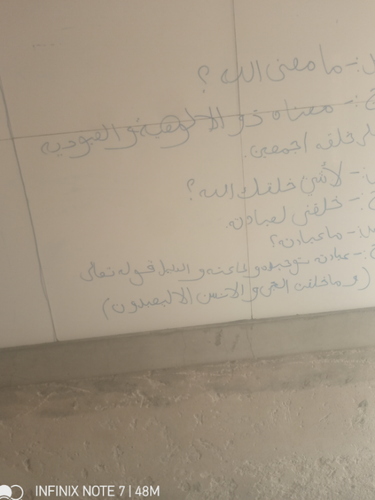 س:- ما معنى الله؟
ج:- معناه ذو الألوهية و العبودية
على خلقه اجمعين.
س:- لأي خلقك الله؟
ج:- خلقني لعبادته.
س:- ما عبادته؟
ج:- عبادته توحيده وطاعته و الدليل قوله تعالى
(وما خلقت الجن و الانس الا ليعبدون)
INFINIX NOTE 7 | 48M